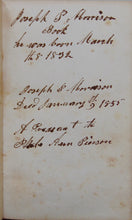 Joseph P. Morrison
Book
he was born March
th 5 1832
Joseph P. Morrison
Died January th 9 1855
A Present to
Ann Pierson